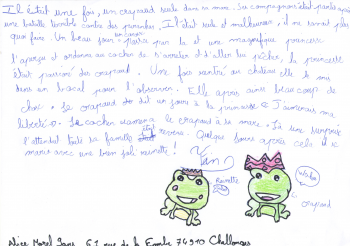 Il était une fois, un crapaud seul dans sa mare. Sa compagnone était partie après
une bataille terrible contre des piranhas. Il était seul et malheureux, il ne savait plus
quoi faire. Un beau jour un carrosse passa par là et une magnifique princesse
l'aperçu et ordonna au cocher de s'arrêter et d'aller le pêcher, la princesse
était passionné des crapaud. Une fois rentré au château elle le mis
dans un bocal pour l'observer. Elle appris ainsi beaucoup de
chose. Le crapaud dit un jour à la princesse « J'aimerais ma
liberté ». Le cocher ramena le crapaud à sa mare. Là une surprise
l'attendait toute sa famille était revenu. Quelque jours après cela il se
marie avec une bien joli rainette !
Fin
Rainette
crapaud
Alice Morel Jans 61 rue de la Combe 74910 Challonges